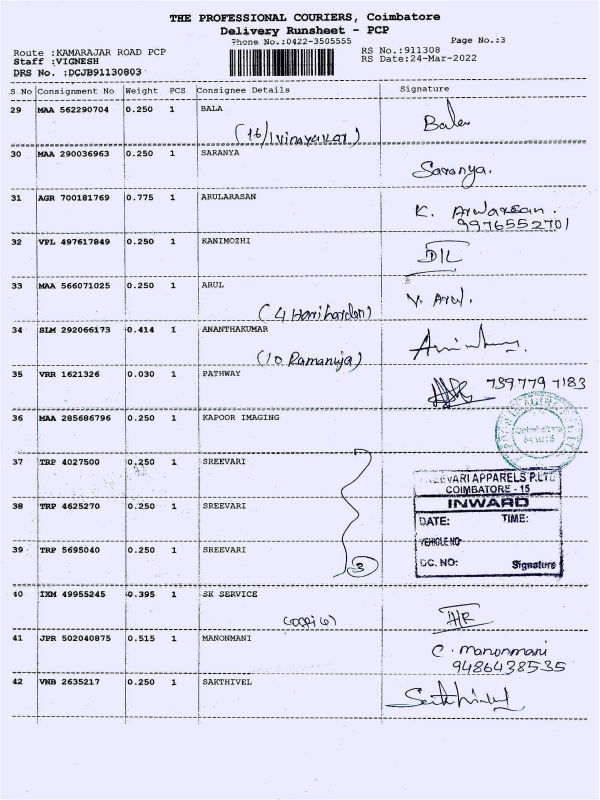 THE PROFESSIONAL COURIERS, Coimbatore
Delivery Runsheet - PCP
Phone No.:0422-3505555
Page No.:3
Route :KAMARAJAR ROAD PCP
RS No.:911308
Staff :VIGNESH
RS Date:24-Mar-2022
DRS No. :DCJB91130803
S No Consignment No Weight PCS Consignee Details Signature
29 MAA 562290704 0.250 1 BALA
30 MAA 290036963 0.250 1 SARANYA Saranya.
31 AGR 700181769 0.775 1 ARULARASAN K.
9976552701
32 VPL 497617849 0.250 1 KANIMOZHI
33 MAA 566071025 0.250 1 ARUL V. Arul.
34 SLM 292066173 0.414 1 ANANTHAKUMAR
(10 Ramanuja)
35 VRR 1621326 0.030 1 PATHWAY 739779 7183
36 MAA 285686796 0.250 1 KAPOOR IMAGING
37 TRP 4027500 0.250 1 SREEVARI
APPARELS P.LTD
COIMBATORE - 15
INWARD
38 TRP 4625270 0.250 1 SREEVARI
DATE: TIME:
VEHICLE NO
39 TRP 5695040 0.250 1 SREEVARI
3
DC. NO: Signature
40 IXM 49955245 0.395 1 SK SERVICE
41 JPR 502040875 0.515 1 MANONMANI C. Manonmani
9486438535
42 VNB 2635217 0.250 1 SAKTHIVEL Sakthivel